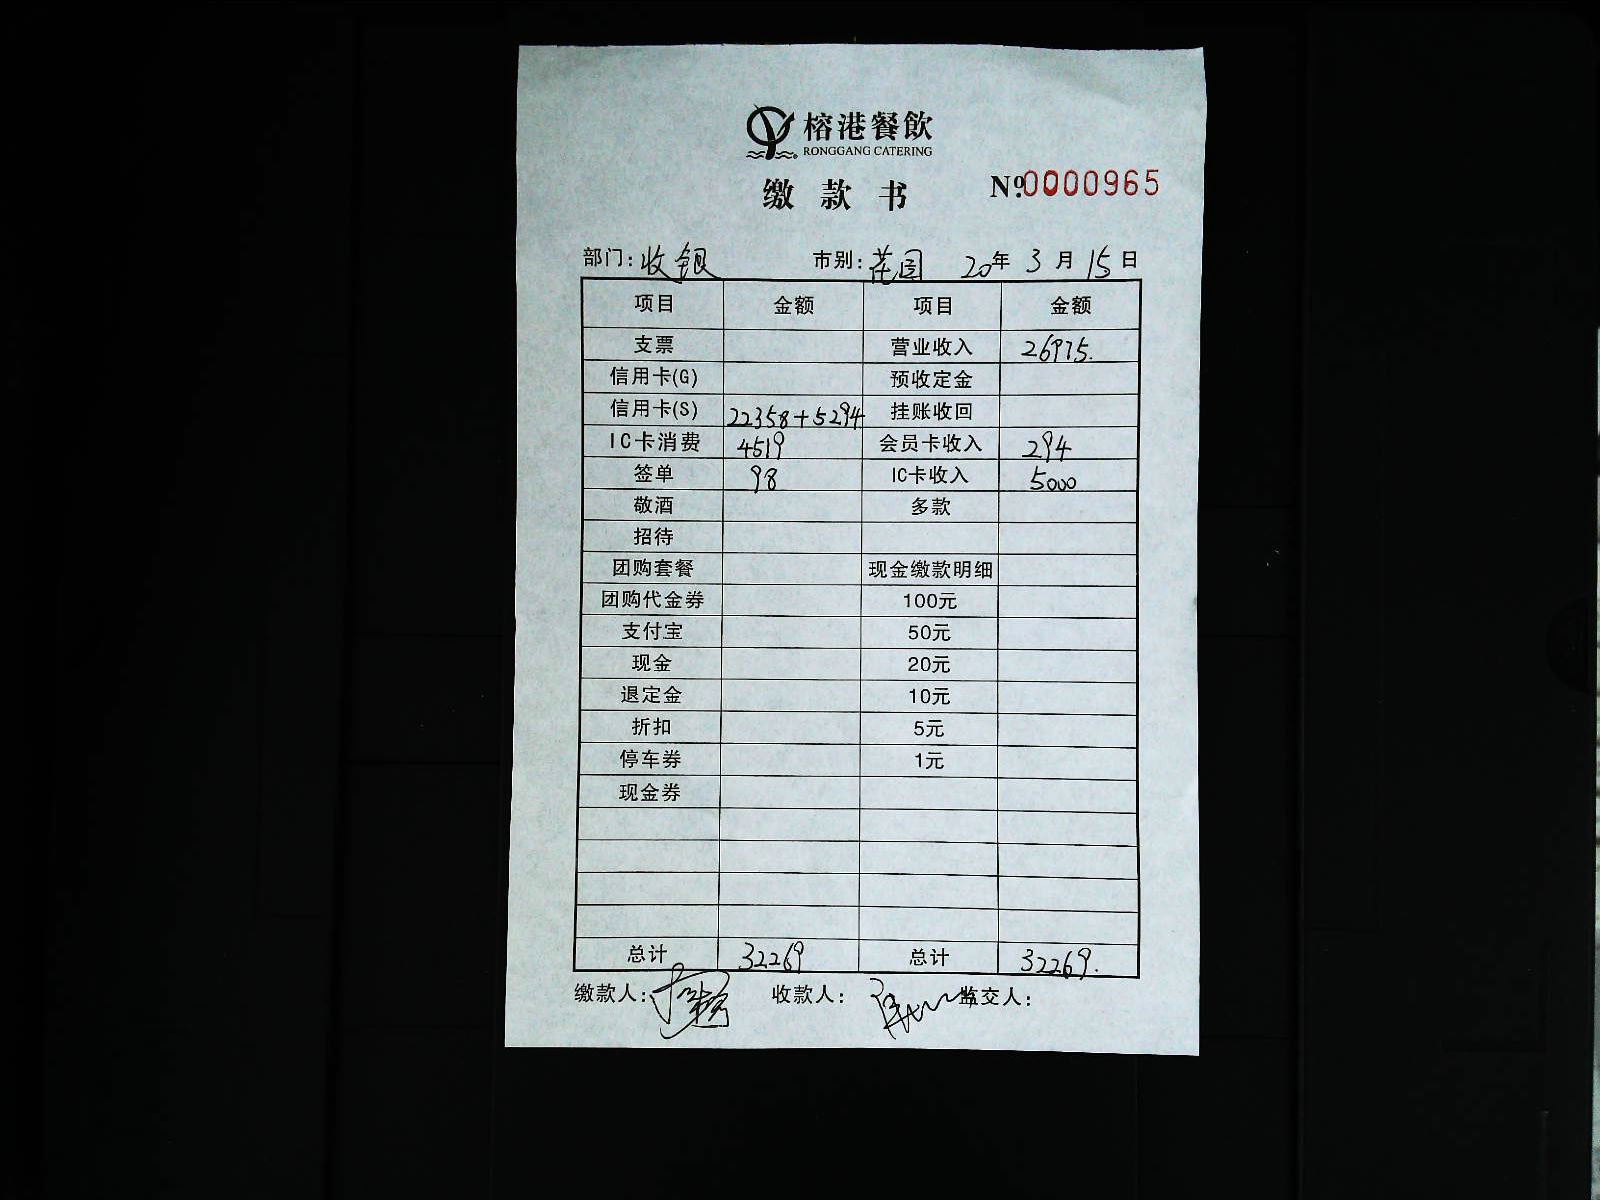 榕港餐飲
RONGGANG CATERING
缴款书 №0000965
部门：收银 市别：花园 20年3月15日
项目 金额 项目 金额
支票 营业收入 26975.
信用卡(G) 预收定金
信用卡(S) 22358+5294 挂账收回
IC卡消费 4519 会员卡收入 294
签单 98 IC卡收入 5000
敬酒 多款
招待
团购套餐 现金缴款明细
团购代金券 100元
支付宝 50元
现金 20元
退定金 10元
折扣 5元
停车券 1元
现金券
总计 32269 总计 32269.
缴款人： 收款人： 监交人：